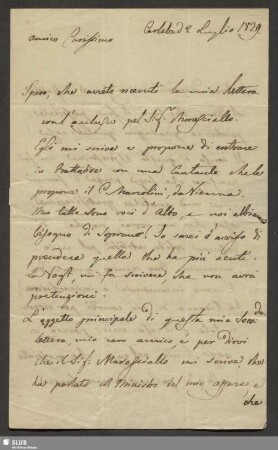 Carlsbad 2 Luglio 1829
amico Carissimo
Spero, che avrete ricevuto la mia lettera
con l'acclusa pel Sig.r Maresciallo.
Egli mi scrive e propone di entrare
in trattative con una Cantante che le
propone il C. Marcolini, da Vienna.
Ma tutte sono voci d'Alto, e noi abbiam
bisogno di Soprano! Io sarei d'avviso di
prendere quella che ha più acuti.
La mi fa scrivere che non avrà
pretenzioni.
L'oggetto principale di questa mia
lettera, mio caro amico, è per dirvi
che il Sig.r Maresciallo mi scrive che
ha parlato al Ministro del mio affare e
che